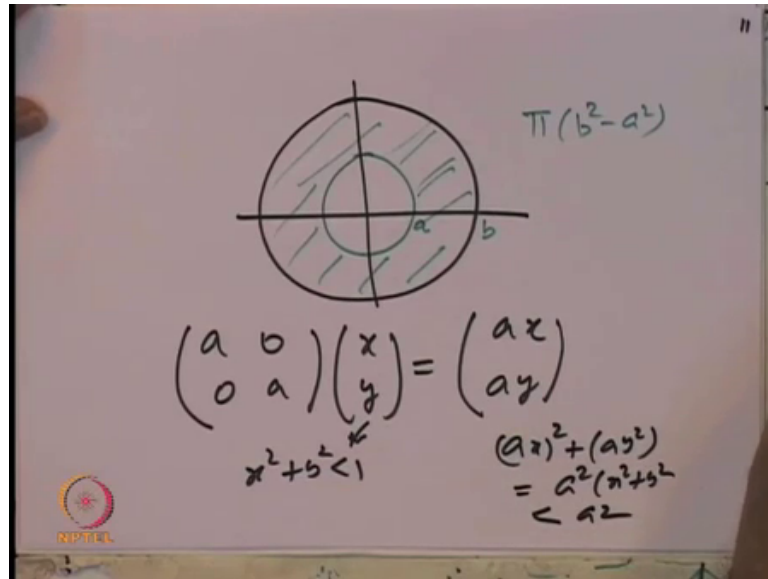 11
π(b²-a²)
a b
(a 0
0 a) (x
y) = (ax
ay)
x²+y²<1
(ax)²+(ay²)
= a²(x²+y²
< a2
NPTEL